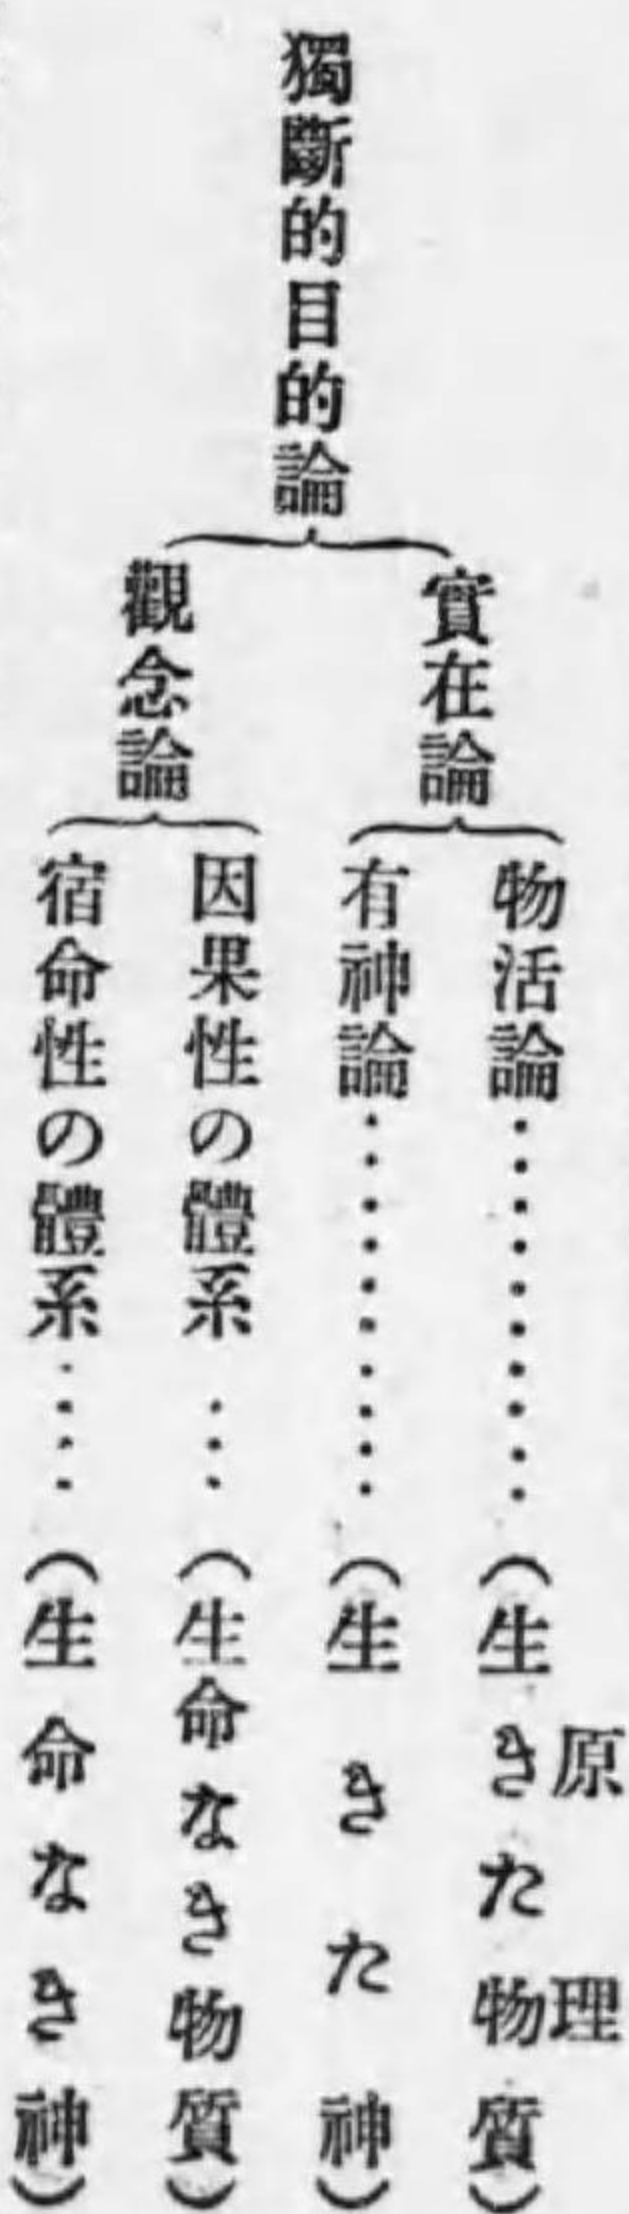 獨斷的目的論
實在論
物活論………(生きた物質)
原理
有神論………(生きた神)
觀念論
因果性の體系…(生命なき物質)
宿命性の體系…(生命なき神)